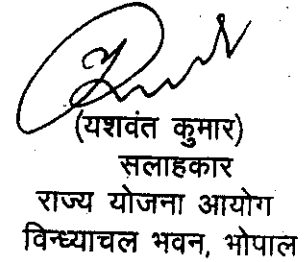 (यशवंत कुमार)
सलाहकार
राज्य योजना आयोग
विन्ध्याचल भवन, भोपाल